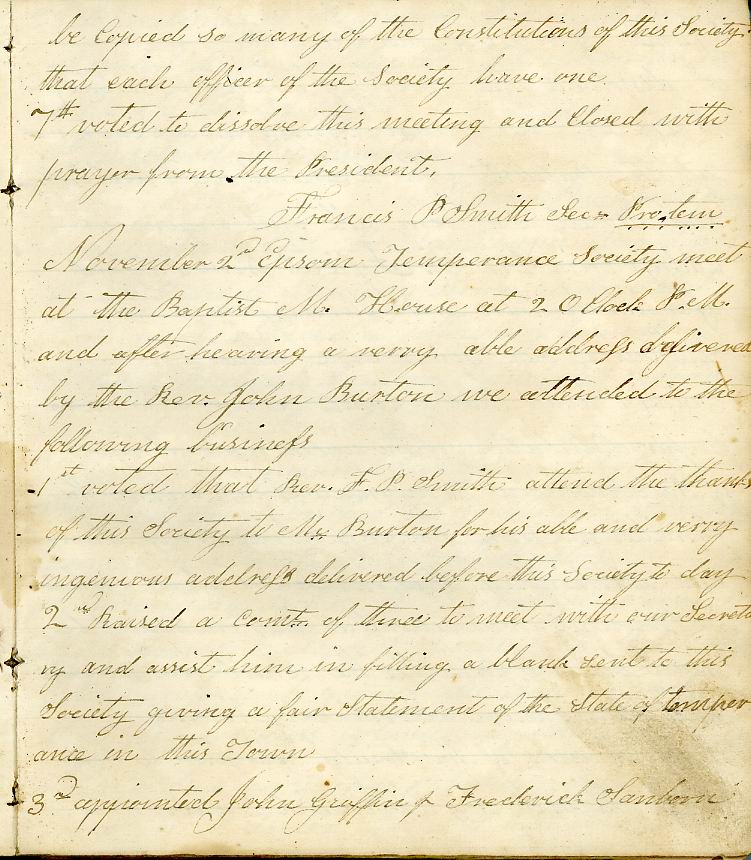 be Copied so many of the Constitutions of this Society
that each officer of the Society have one
7th voted to dissolve this meeting and Closed with
prayer from the President.
Francis P Smith Sec= Protem
November 2nd Epsom Temperance Society meet
at the Baptist M. House at 2 O Clock P.M.
and after hearing a verry able address delivered
by the Rev. John Burton we attended to the
following business
1st voted that Rev. F. P. Smith attend the thanks
of this Society to Mr Burton for his able and verry
ingenious address delivered before this Society to day
2nd Raised a comt. of three to meet with our Secreta
ry and assist him in filling a blank sent to this
Society giving a fair Statement of the State of temper
ance in this Town
3rd appointed John Griffin & Frederick Sanborn